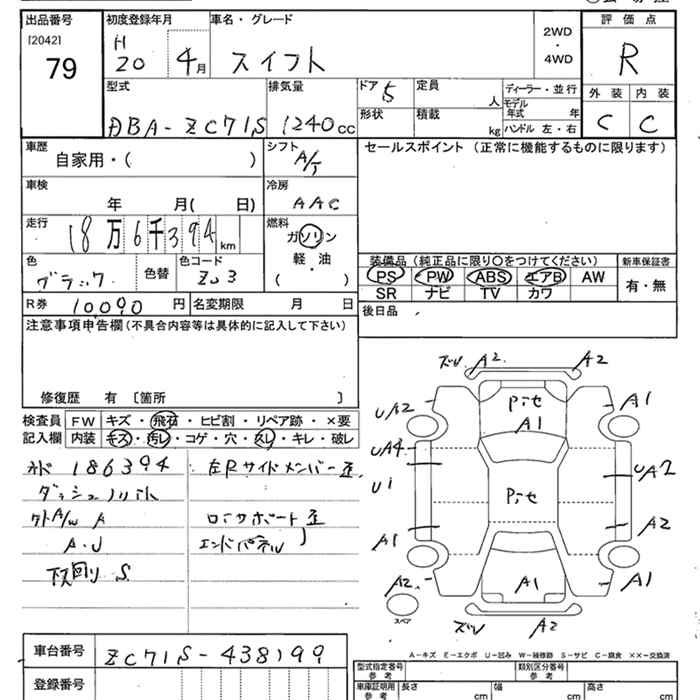 出品番号 初度登録年月 車名・グレード 評価点
[2042] H 2WD
79 20 4月 スイフト ・ R
4WD
型式 排気量 ドア 5 定員 人 ディーラー・並行 外装 内装
DBA-ZC71S 1240cc 形状 積載 kg モデル年式 年 C C
ハンドル 左・右
車歴 シフト セールスポイント (正常に機能するものに限ります)
自家用・( ) A/T
車検 冷房
年 月( 日) AAC
走行 燃料
18万6千394km ガソリン
色 色替 色コード 軽・油 装備品 (純正品に限り○をつけてください) 新車保証書
ブラック ZJ3 ( ) PS PW ABS エアB AW 有・無
R券 10090円 名変期限 月 日 SR ナビ TV カワ
注意事項申告欄 (不具合内容等は具体的に記入して下さい) 後日品
修復歴 有 〔箇所 〕
検査員 FW キズ・飛石・ヒビ割・リペア跡・×要
記入欄 内装 キズ・汚レ・コゲ・穴・スレ・キレ・破レ
186394 左Rサイドメンバー歪
A コアサポート歪
A・U エンドパネル 〃
下回り S
A2 A2
UA2 Pite A1
A1
UA4 UA2
U1 Pite
A1 A2
A2 A1 A1
スペア A2
A-キズ E-エクボ U-凹み W-補修跡 S-サビ C-腐食 ××-交換済
車台番号 ZC71S-438199 型式指定番号 参考 類別区分番号 参考
登録番号 車庫証明用 参考 長さ cm 幅 cm 高さ cm